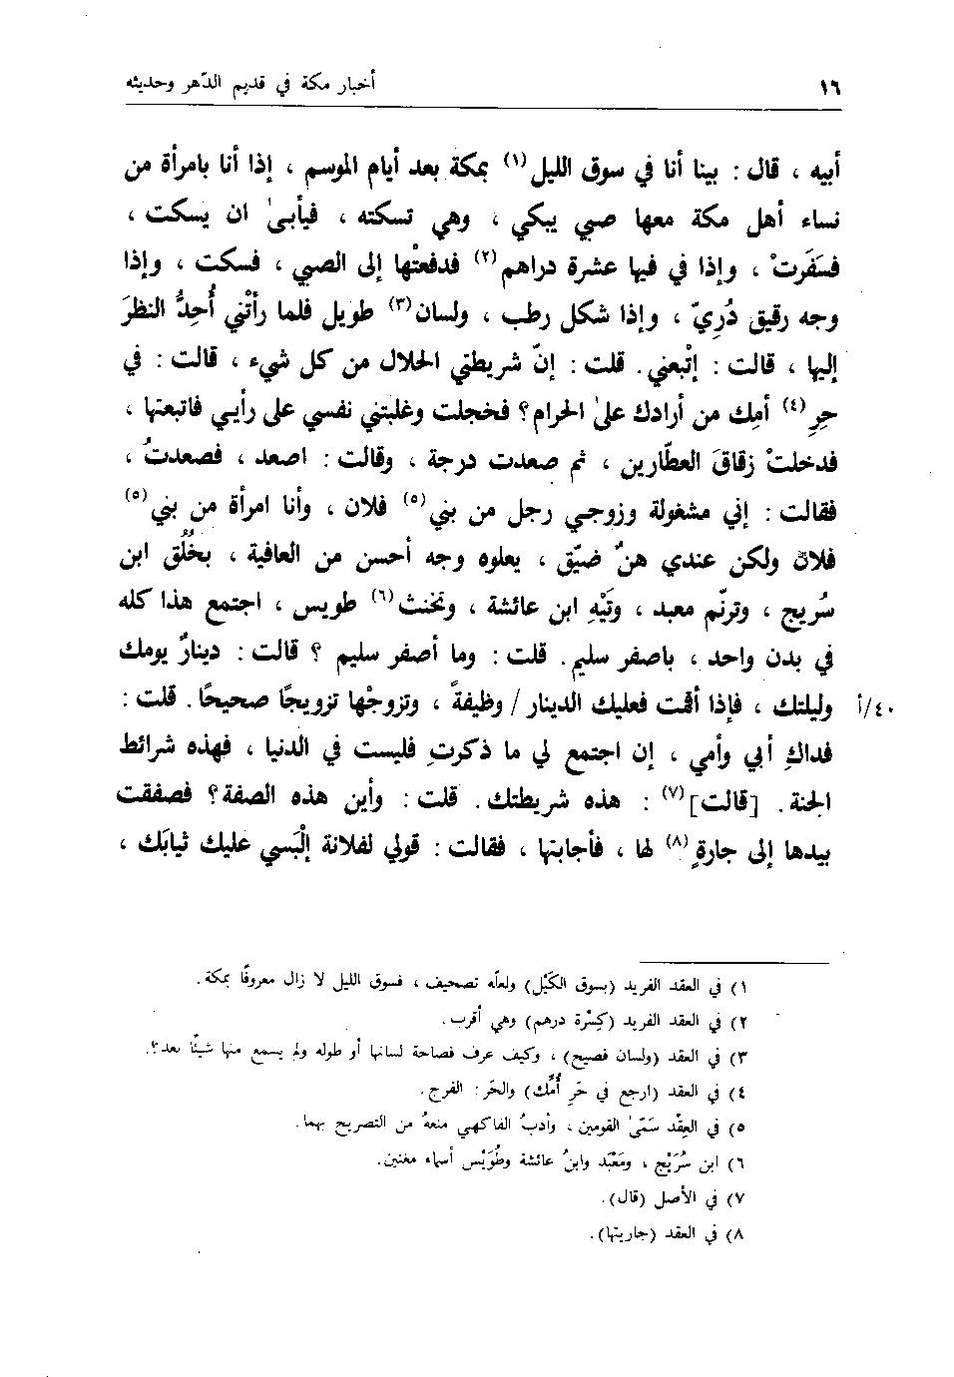 ١٦ أخبار مكة في قديم الدّهر وحديثه
أبيه ، قال : بينا أنا في سوق الليل(١) بمكة بعد أيام الموسم ، إذا أنا بامرأة من
نساء أهل مكة معها صبي يبكي ، وهي تسكته ، فيأبىٰ ان يسكت ،
فسَفَرتْ ، وإذا في فيها عشرة دراهم(٢) فدفعتْها إلى الصبي ، فسكت ، وإذا
وجه رقيق دُريّ ، وإذا شكل رطب ، ولسان(٣) طويل فلما رأتْني أُحِدُّ النظرَ
إليها ، قالت : إتْبعني. قلت : إنّ شريطتي الحلال من كل شيء ، قالت : في
حِرِ(٤) أمِك من أرادك علىٰ الحرام؟ فخجلت وغلبتني نفسي على رأيي فاتبعتها ،
فدخلتْ زقاقَ العطّارين ، ثم صعدت درجة ، وقالت : اصعد ، فصعدتُ ،
فقالت : إني مشغولة وزوجي رجل من بني(٥) فلان ، وأنا امرأة من بني(٥)
فلان ولكن عندي هنٌ ضيّق ، يعلوه وجه أحسن من العافية ، بخُلُق ابن
سُريج ، وترنّم معبد ، وتَيْهِ ابن عائشة ، وتخنث(٦) طويس ، اجتمع هذا كله
في بدن واحد ، باصفر سليم. قلت : وما أصفر سليم ؟ قالت : دينارٌ يومك
وليلتك ، فإذا أقمت فعليك الدينار / وظيفةً ، وتزوجْها تزويجًا صحيحًا. قلت : ٤٠/أ
فداكِ أبي وأمي ، إن اجتمع لي ما ذكرتِ فليست في الدنيا ، فهذه شرائط
الجنة. [قالت](٧) : هذه شريطتك. قلت : وأين هذه الصفة؟ فصفقت
بيدها إلى جارةٍ(٨) لها ، فأجابتها ، فقالت : قولي لفلانة إلْبَسي عليك ثيابَك ،
١) في العقد الفريد (بسوق الكَيْل) ولعلّه تصحيف ، فسوق الليل لا زال معروفًا بمكة.
٢) في العقد الفريد (كِسْرة درهم) وهي أقرب.
٣) في العقد (ولسان فصيح) ، وكيف عرف فصاحة لسانها أو طوله ولم يسمع منها شيئًا بعد؟.
٤) في العقد (ارجع في حَرِ أُمِّك) والحَر : الفرج.
٥) في العِقْد سَمّىٰ القومين ، وأدبُ الفاكهي منعهُ من التصريح بهما.
٦) ابن سُرَيْج ، ومَعْبَد وابنُ عائشة وطُوَيْس أسماء مغنين.
٧) في الأصل (قال).
٨) في العقد (جاريتها).